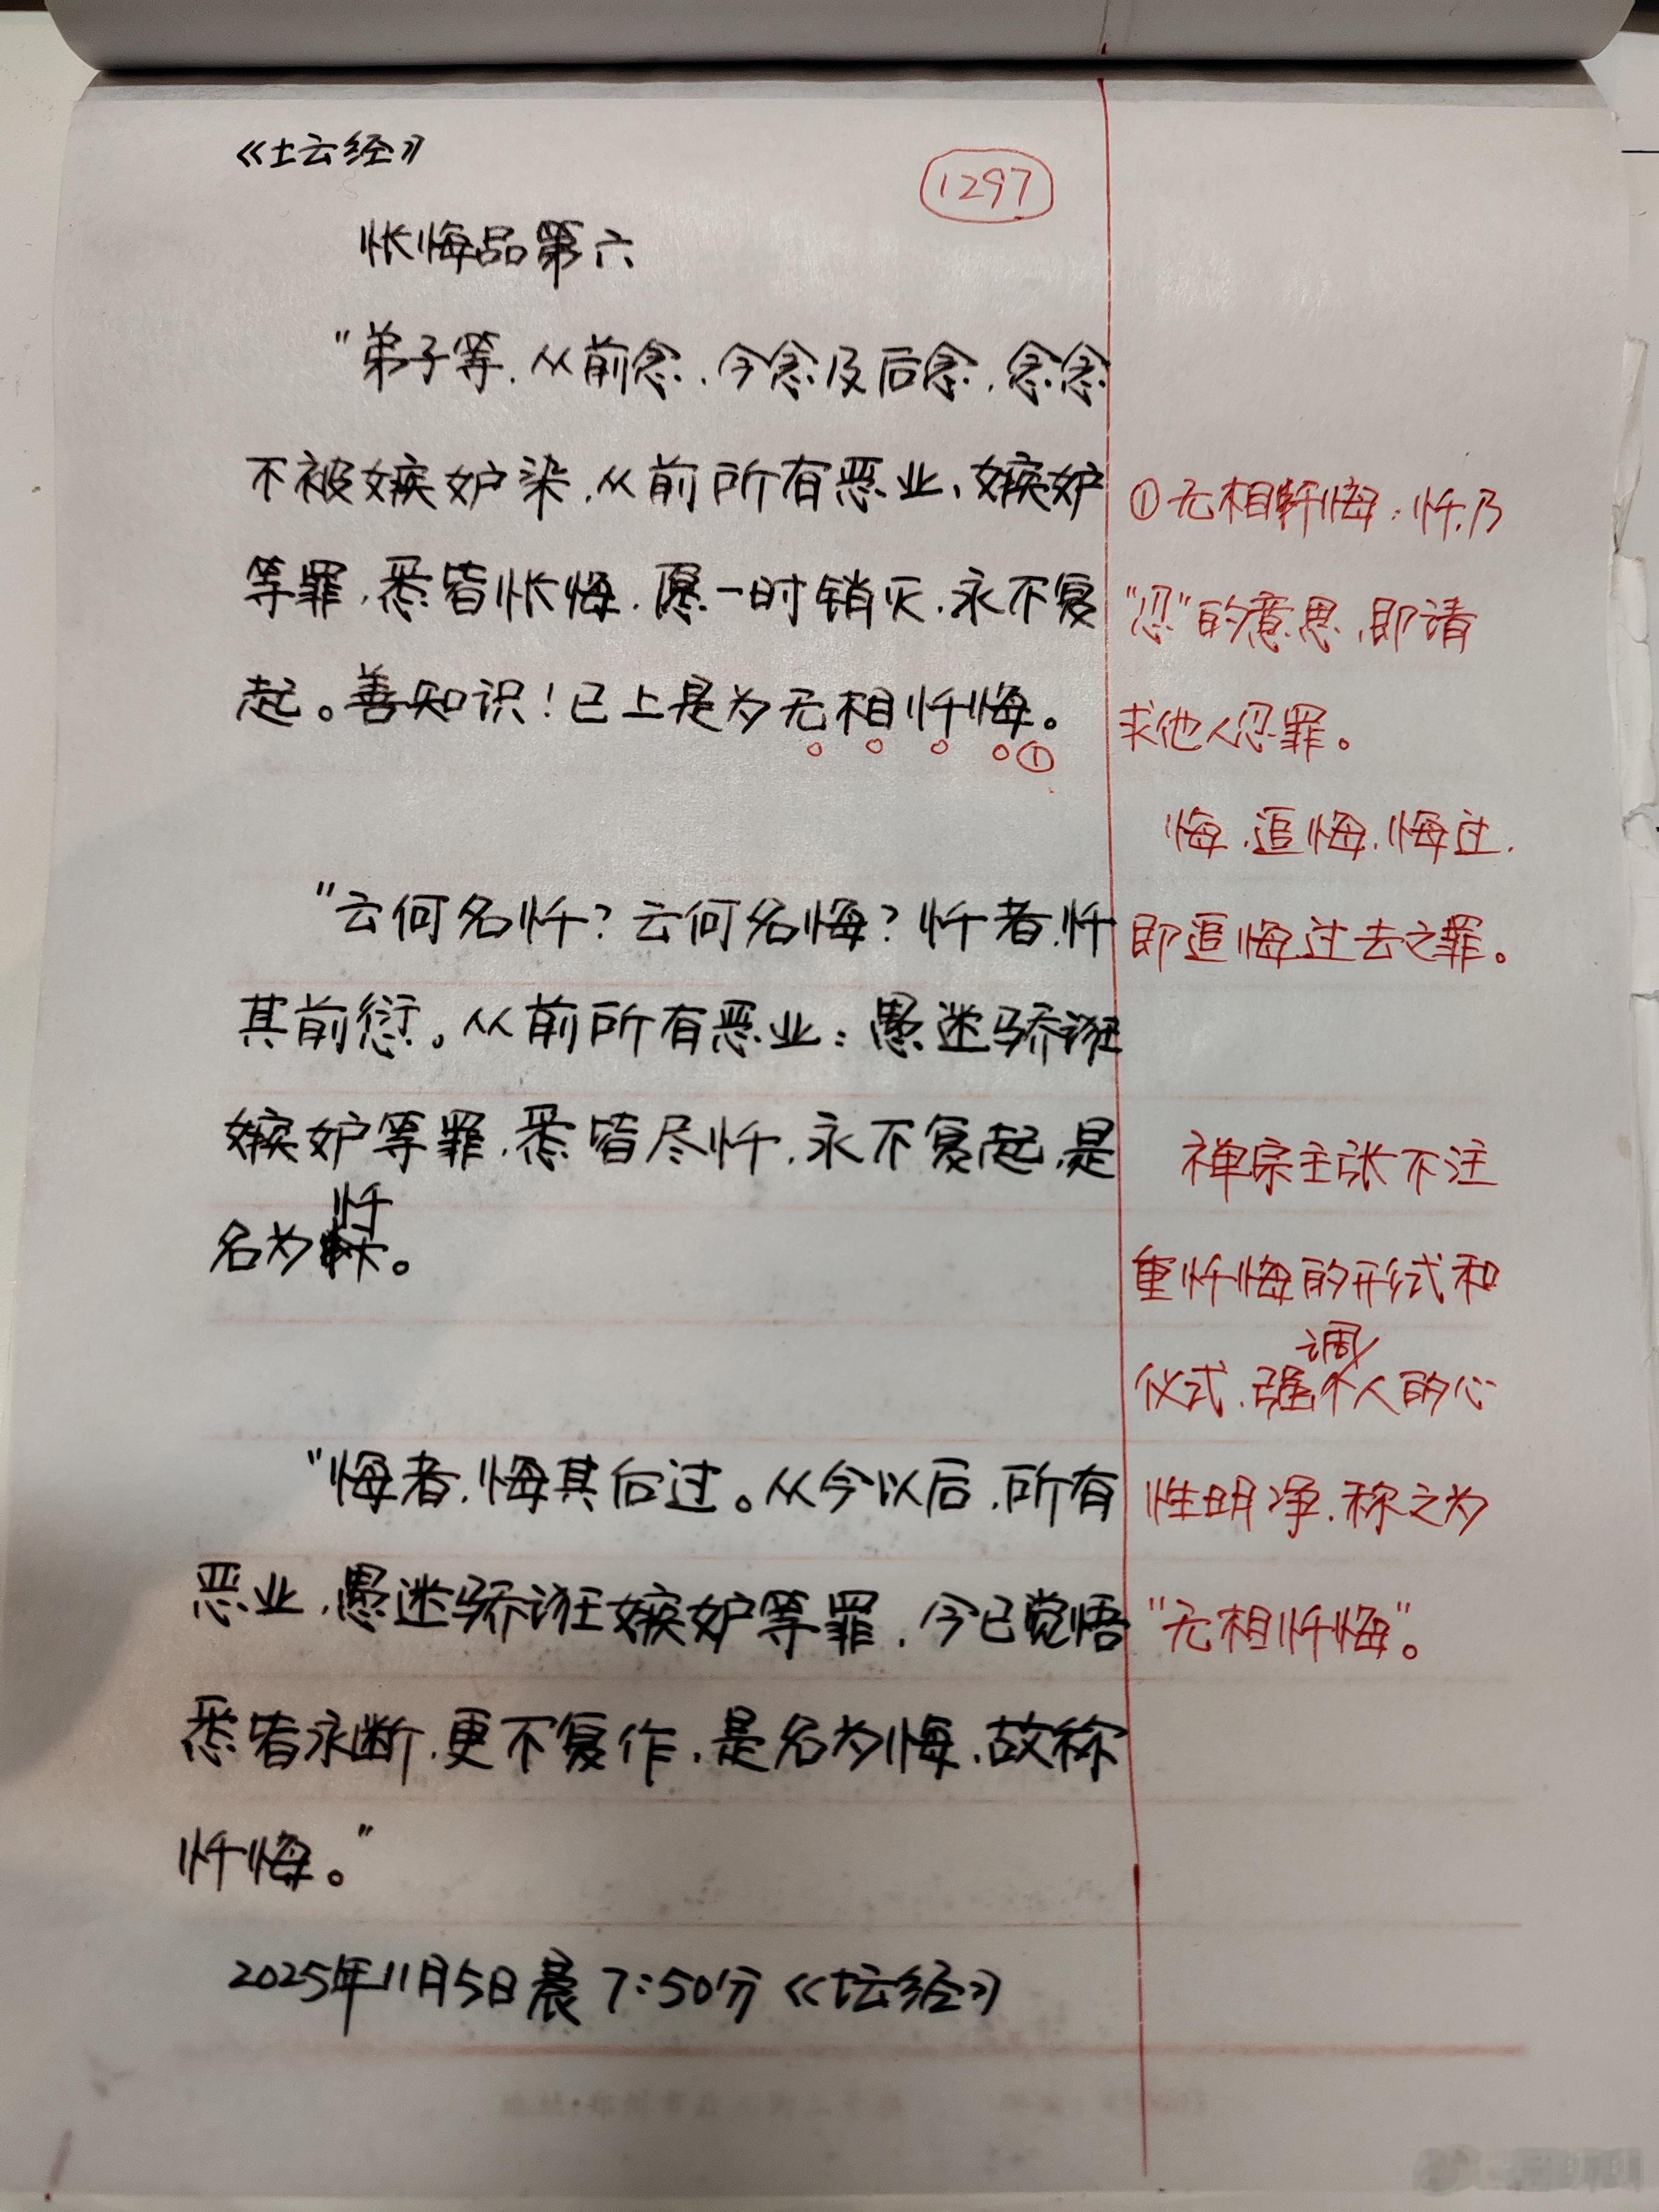 《坛经》
1297
怅悔品第六
"弟子等,从前念,今念及后念,念念
不被嫉妒染,从前所有恶业、嫉妒
等罪,悉皆怅悔,愿一时销灭,永不复
起。善知识!已上是为无相忏悔。
①
"云何名忏?云何名悔?忏者,忏
其前愆。从前所有恶业:愚迷骄诳
嫉妒等罪,悉皆尽忏,永不复起,是
名为忏。
"悔者,悔其后过。从今以后,所有
恶业,愚迷骄诳嫉妒等罪,今已觉悟
悉皆永断,更不复作,是名为悔,故称
忏悔。"
2025年11月5日晨7:50分《坛经》
①无相忏悔:忏,乃
"忍"的意思,即请
求他人忍罪。
悔,追悔,悔过,
即追悔过去之罪。
禅宗主张不注
重忏悔的形式和
仪式,强调个人的心
性明净,称之为
"无相忏悔"。